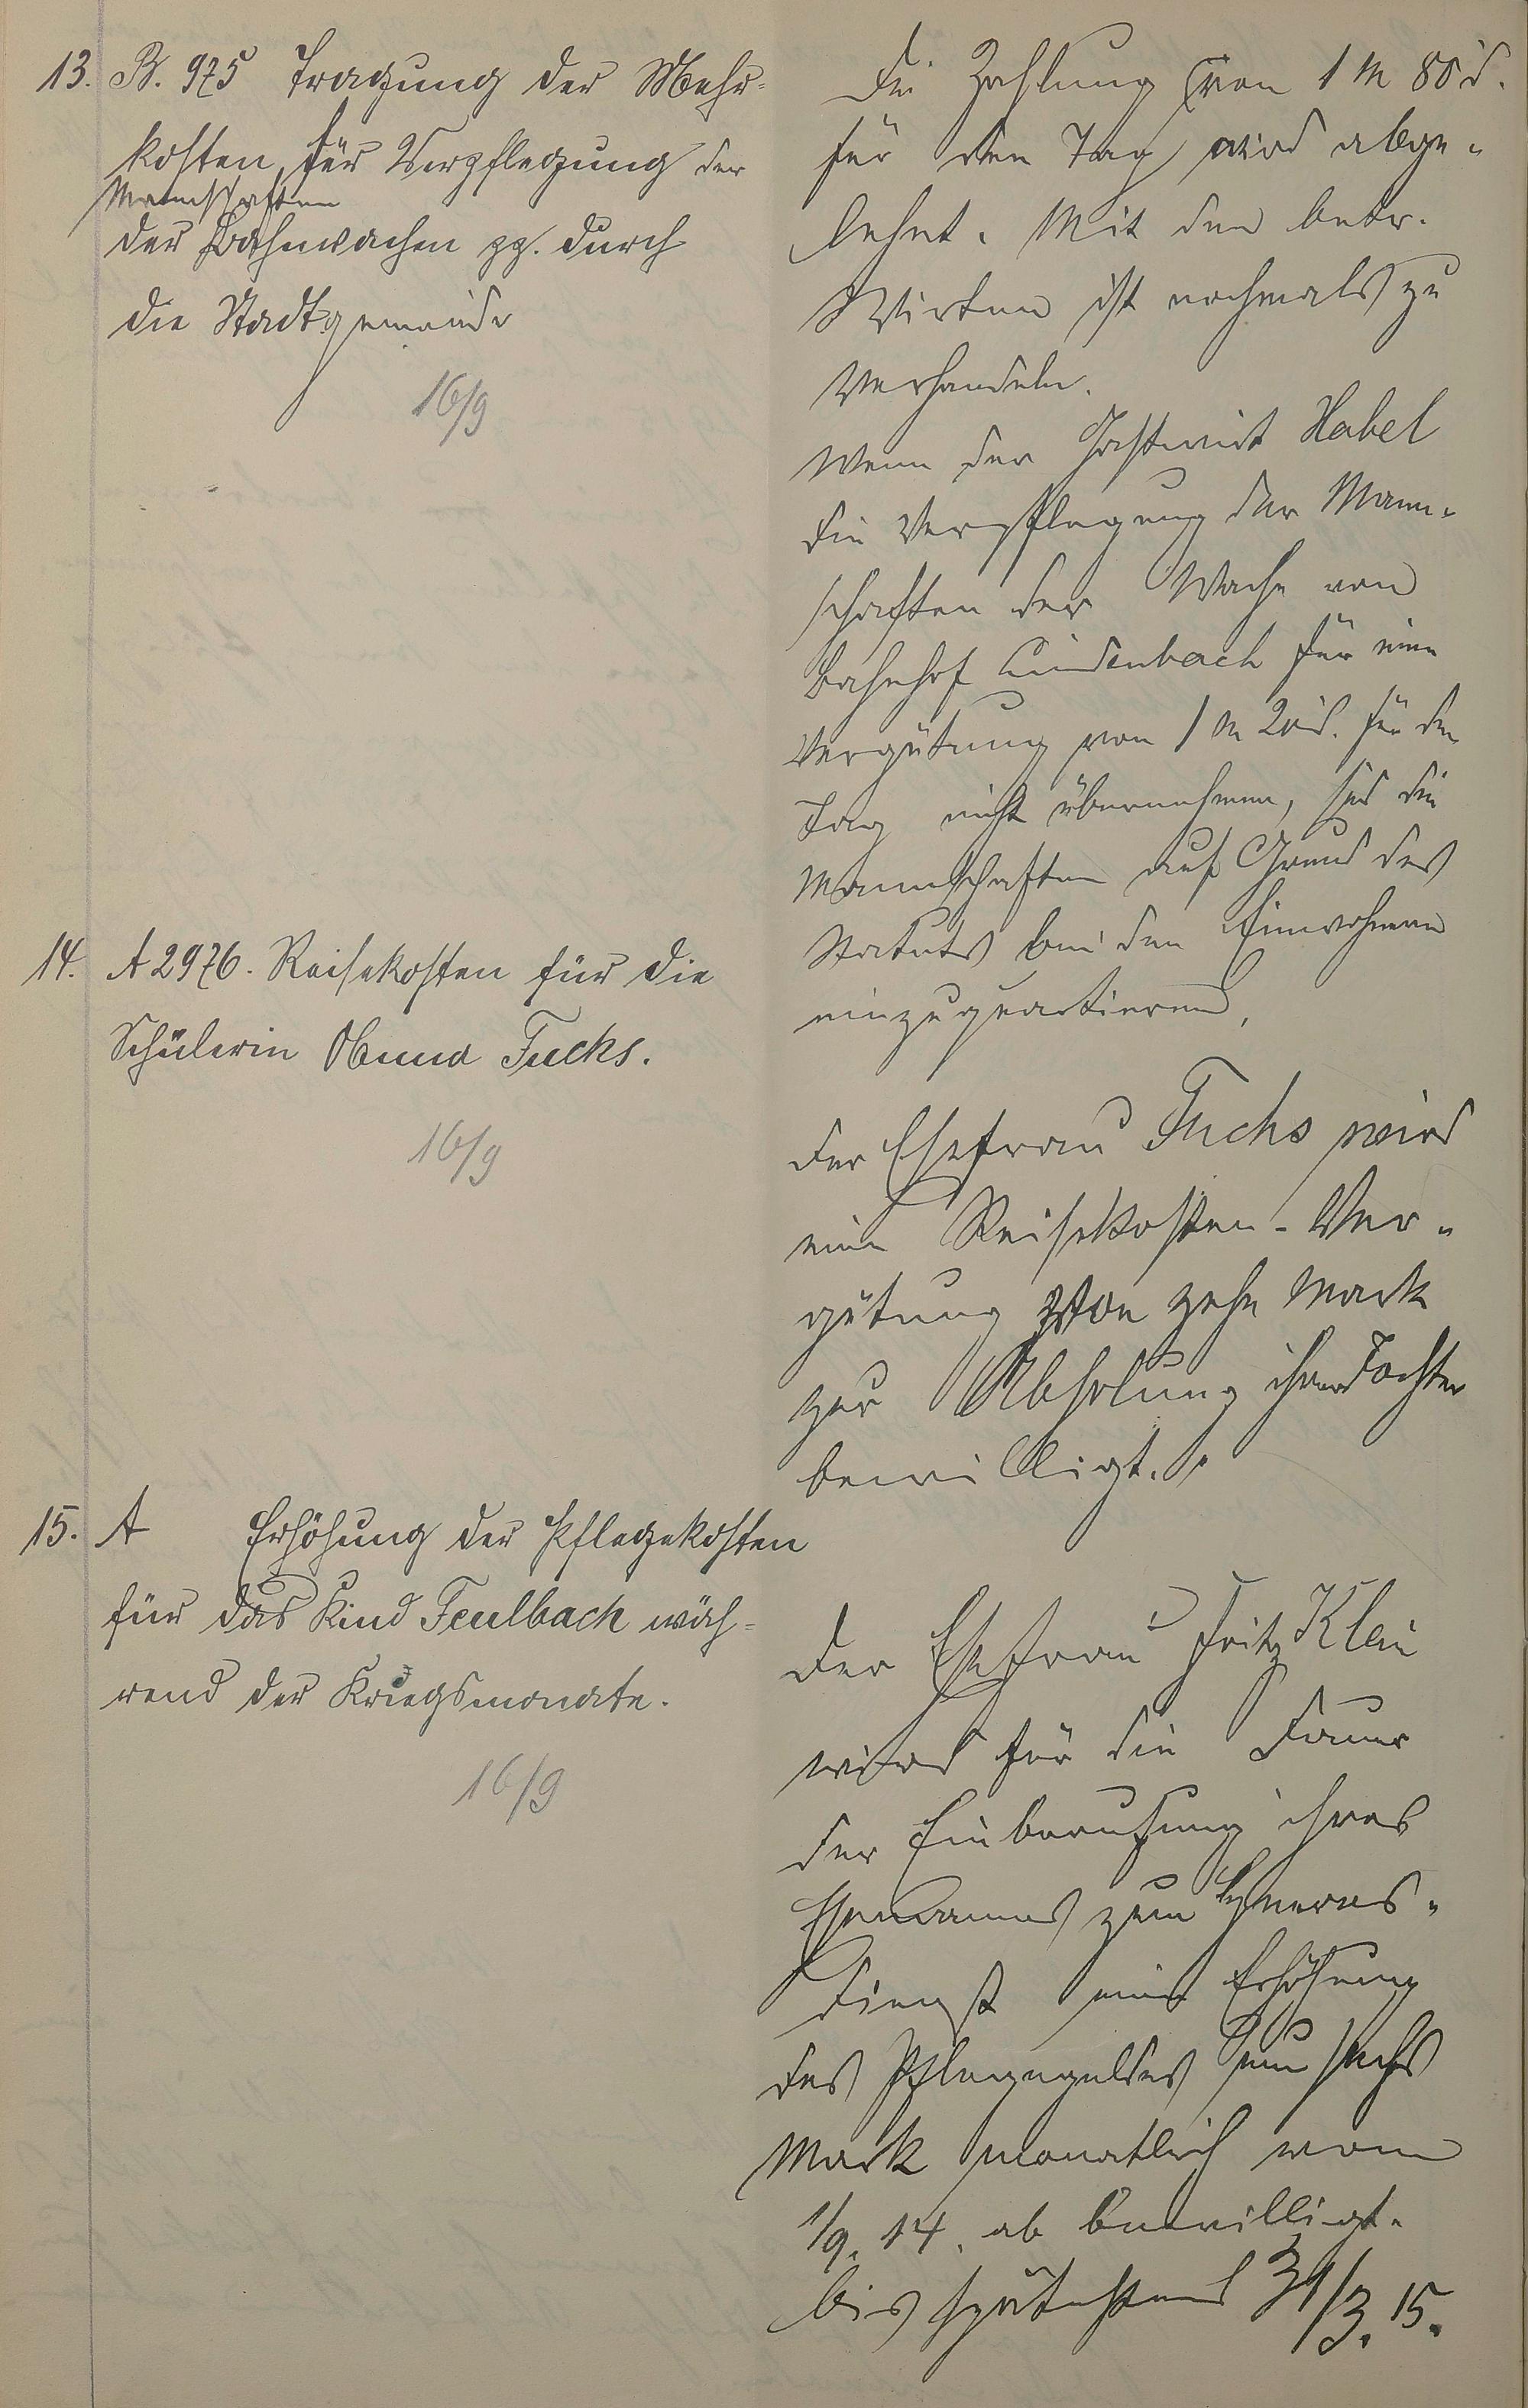 13. B. 975 Tragung der Mehr-
kosten für Verpflegung der
Mannschaften
der Bahnwachen pp. durch
die Stadtgemeinde
16/9
Die Zahlung von 1 M 80 d.
für den Tag wird abge-
lehnt. Mit den betr.
Wirten ist nochmals zu
verhandeln.
Wenn der Gastwirt Habel
die Verpflegung der Mann-
schaften der Wache von
Bahnhof Lindenbach für eine
Vergütung von 1 M 20 d. für den
Tag nicht übernehmen, sind die
Mannschaften auf Grund des
Statuts bei den Einwohnern
einzuquartieren.
14. A 2976. Reisekosten für die
Schülerin Fuchs.
16/9
Der Ehefrau Fuchs wird
eine Reisekosten-Ver-
gütung von zehn Mark
zur Abholung ihrer Tochter
bewilligt.
15. A Erhöhung der Pflegekosten
für das Kind Feulbach wäh-
rend der Kriegsmonate.
16/9
Der Ehefrau Fritz Klein
wird für die Dauer
der Einberufung ihres
Ehemannes zum Heeres-
dienst eine Erhöhung
des Pflegegeldes um sechs
Mark monatlich vom
1/9. 14. ab bewilligt.
bis spätestens 31/3. 15.